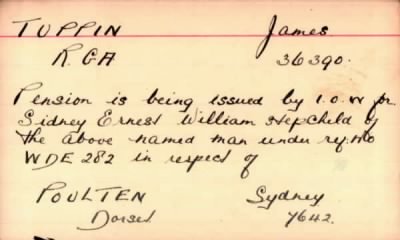 TUPPIN James
R.G.A 36390.
Pension is being issued by I.O.W for
Sidney Ernest William stepchild of
the above named man under reg. no
WDE 282 in respect of
POULTEN Sydney
Dorset 7642.